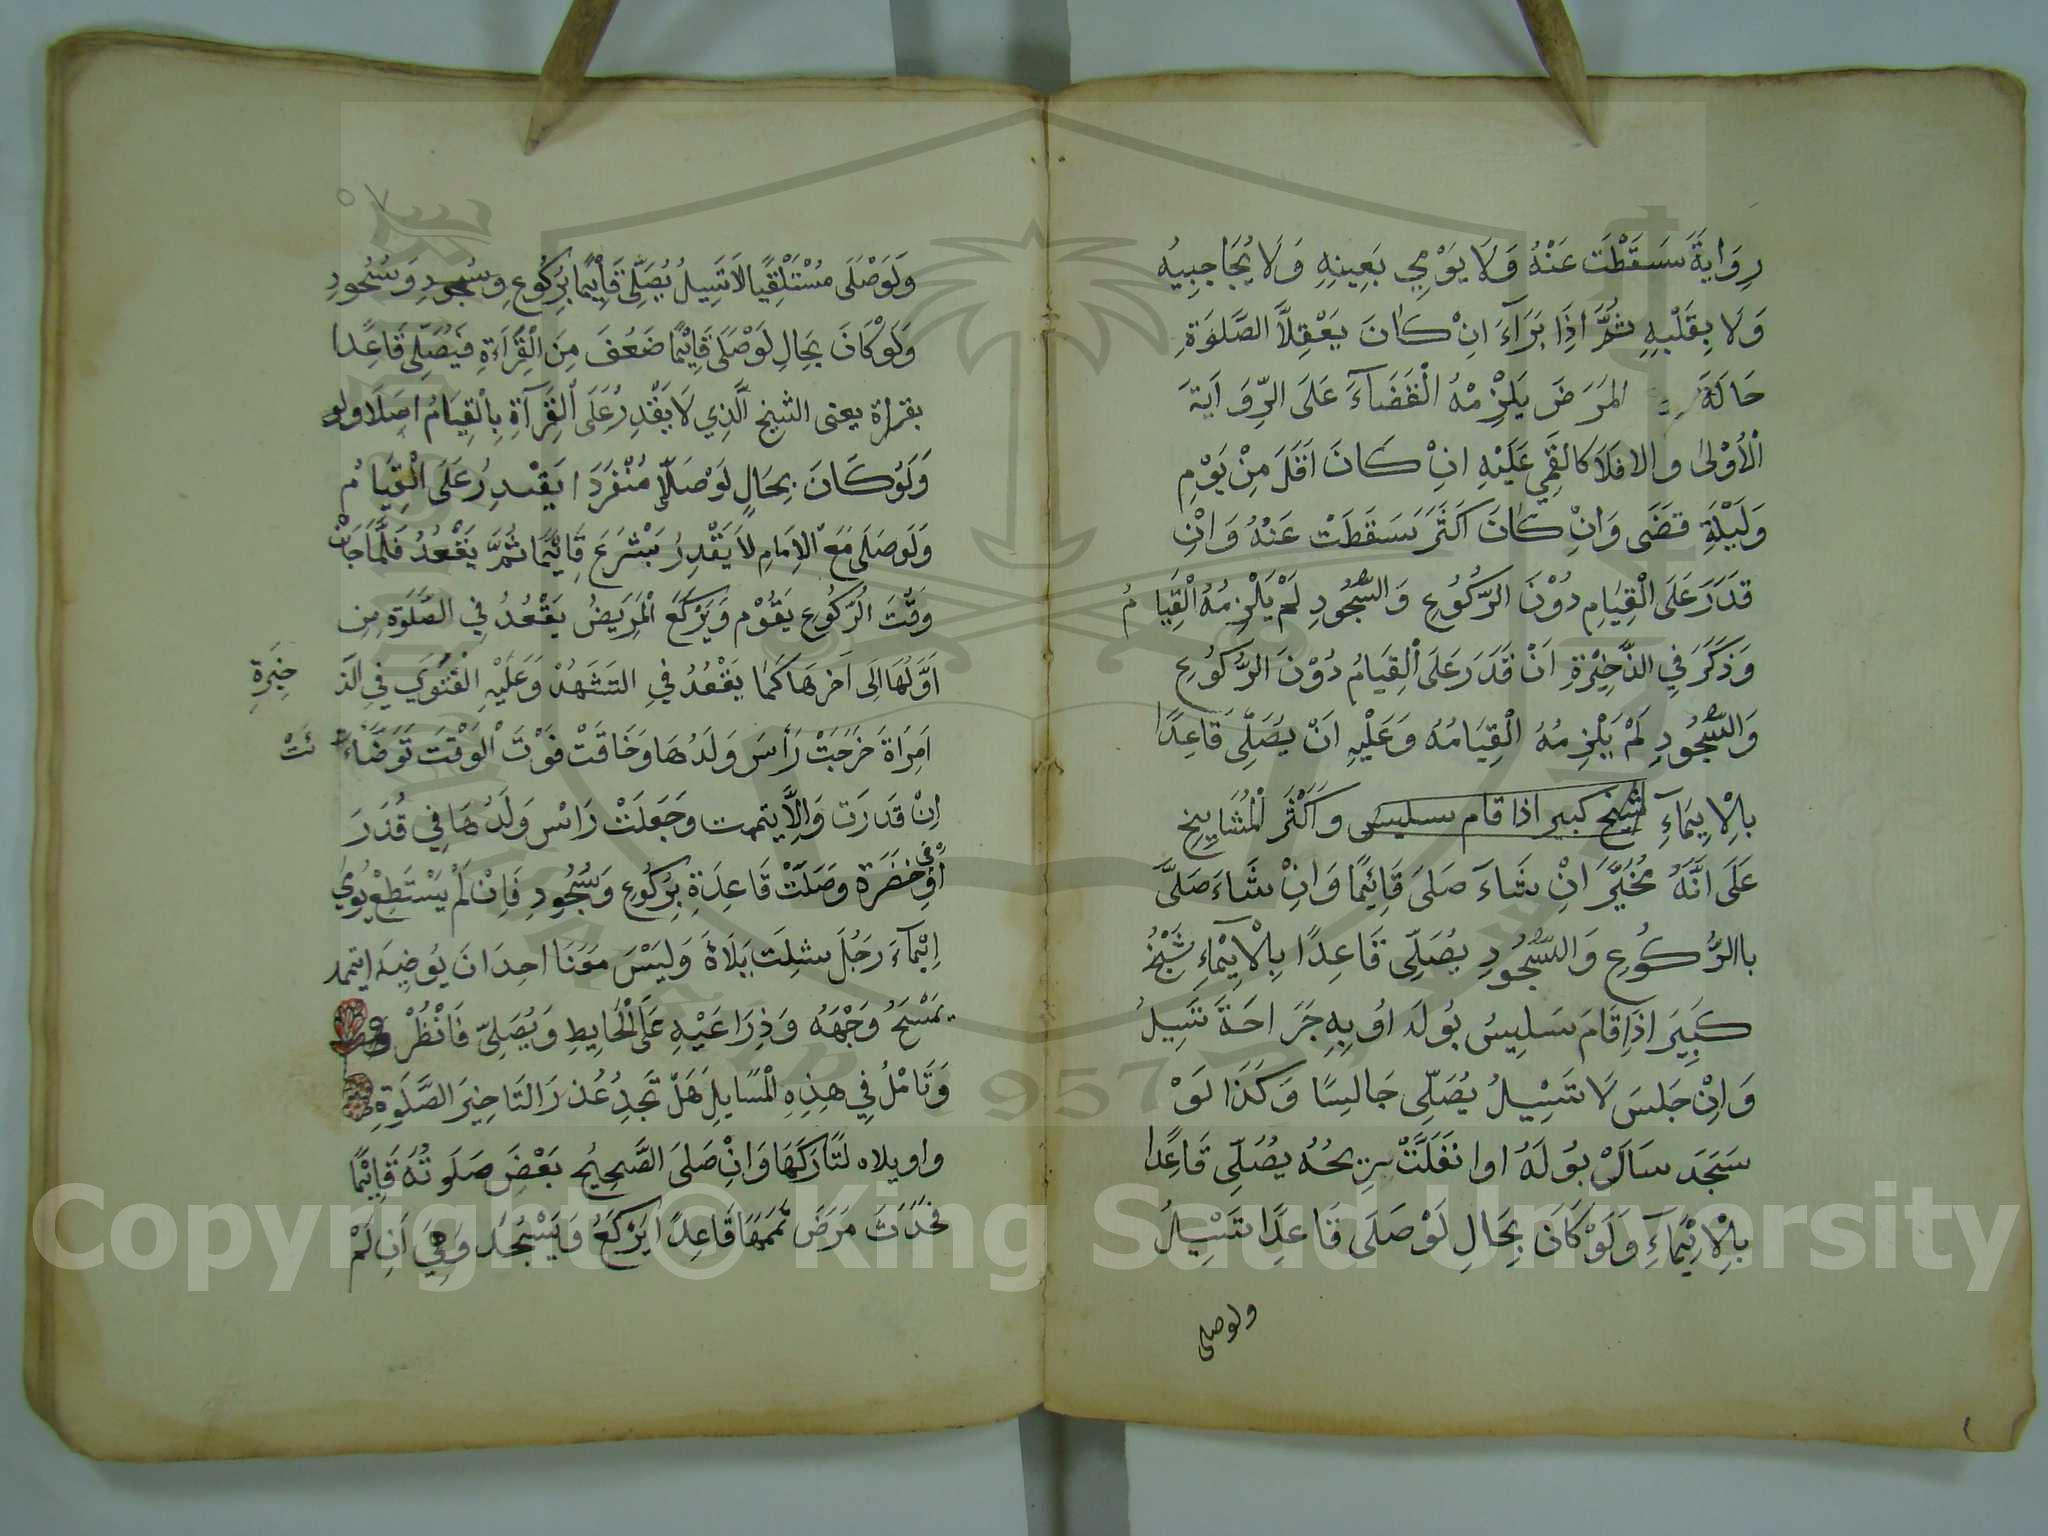 رِوَايَةَ سَسَقَطَتْ عَنْهُ وَلَا يَوْمِي بَعِينِهِ وَلَا يُحَاجِبِيهُ
وَلَا بِقَلْبِهِ ثُمَّ اذَِا بَرَآءَ انِْ كَانَ يَعْقِلَُ الصَّلَوَةِ
حَالَةَ المَرَضَ يَلْزِمْهُ الْقَضَآءَ عَلَى الرِّوَايَةَ
الْأُوْلىٰ والافَلَا كَالْقَمِي عَلَيْهِ انِْ كَانَ اَقَلَ مِنْ يَوْمِ
وَلَيْلَةِ قَضَى وَانِْ كَانَ اَكَثَرَ سَقَطَتْ عَنْهُ وَانِْ
قَدَرَ عَلَى الْقِيَامِ دُوْنَ الرُّكُوُعِ وَالسُّجُودِ لَمْ يَلْزِمُهُ الْقِيَامُ
وَذَكَرَ فِي الذَّخِيْرَةِ اَنْ قَدَرَ عَلَى الْقِيَامُ دُوْنَ الرُّكُوُعِ
وَالسُّجُودِ لَمْ يَلْزِمُهُ الْقِيَامُهُ وَعَلَيْهِ اَنْ يُصَلِّى قَاعِدًا
بِالْاِيمَآءِ شيخ كبير اذا قام سليس وَاَكْثَرَ الْمُشَايِخِ
عَلَى اَنَّهُ مُخَيَّرَ انِْ شَآءَ صَلىَ قَائِمًا وَانِْ شَآءَ صَلىَّ
باالرُّكُوُعِ وَالسُّجُودِ يُصَلِّى قَاعِدًا بِالْاِيْمَآءِ شَيْخُ
كَبِيَر اذَِا قَامَ سَلِيسُ بُولَهُ اوُبِهِ جَرَاحَةَ تَسِيلُ
وَانِْ جَلسَ لَا تَسْيِلُ يُصَلِّى جَالسًِا وَكَذَا لَوْ
سَجَدَ سَالَ بُولَهُ اوانفَلَتْ رِيحُهُ يُصَلِّى قَاعِدًا
بِالْاِيْمَآءِ وَلَوْ كَانَ بِحَالِ لَوْ صَلَى قَاعِدًا تَسْيِلُ
ولوصلى
٥٧
وَلَوَصْلَى مُسْتَلْقِيًا لَا تَسِيلُ يُصَلِّى قَائِمًا بِرُكُوعِ وسُجودِ وَسُجُودِ
وَلَوْ كَانَ بِحَالِ لَوْصَلَى قَائِمًا ضَعُفَ مِنَ الْقِرَاءَةِ فَيُصَلِّى قَاعِدًا
بقراة يعنى الشيخ الَّذِي لَا يَقْدِرُ عَلَى الْقِرَآةِ بِالْقِيَامُ اصَلَا ولو
وَلَوُكَانَ بِحَالٍ لَوْصَلَّا مُنْفَرَدَا يَقْدِرُ عَلَى الْقِيَامُ
وَلَو صَلَى مَعَ الْاِمَامِ لَا يَقْدِرُ يَشْرَعَ قَائِمًا ثُمَّ يَقْعُدُ فَلَمَّا جَانْ
وَقْتَ الُرَّكُوعِ يَقُوْمِ وَيَرْكَعَ الْمَرِيَضُ يَقْعُدُ فِي الصَّلَوَةِ مِن
اَوَّلُهَا اِلَى اَخرهَا كَمَا يَقْعُدُ فيِ التشَهدُ وَعَلَيْهِ الْفَتْوَي فيِ الَذ
خِيَرةِ
اَمِرَاةَ خَرَجَتْ رَأْسَ وَلَدُهَا وَخَافَتْ فَوْتَ الْوَقْتَ تَوَضَّاءَ
ئَتْ
اِنْ قَدَرَتَ وَاِلَّا يتممت وجَعَلَتْ رَاْسِ وَلَدُهَا فِي قُدَرَ
اَوْفِي حَضَرَة وصَلَتْ قَاعِدَةِ بِرُكُوعِ وَسُجُودِ فَاِنْ لَمْ يَسْتَطِعْ يُومِي
اِيْمَآءَ رَجُلَ شلِتَ يَلَاهُ وَليَسْ مَعَنَا احِدَانَ يوُضِيَه ايتمد
يَمْسَحُ وَجْهَهُ وَذِرَاعَيْهِ عَلَى الْحَايطِ وَيُصَلِىّ فَانْظُرْ
وَتَامْلُ فِي هذِهِ الْمَسَايلِ هَلْ تَجَدُِ عُذرَ التَاخيَِر الصَّلَوَةِ
واويلاه لتَارَكَهَا وَانِْ صَلىَ الصَّحِيُح بَعْضَ صَلَوتُهُ قَائِمًا
فَحَدَثَ مَرَضَ تَمَمَهَا قَاعِدًا يَرْكَعُ وَيَسْجُدُ وَفِيَ اَنِ لَمْ
957
Copyright © King Saud University